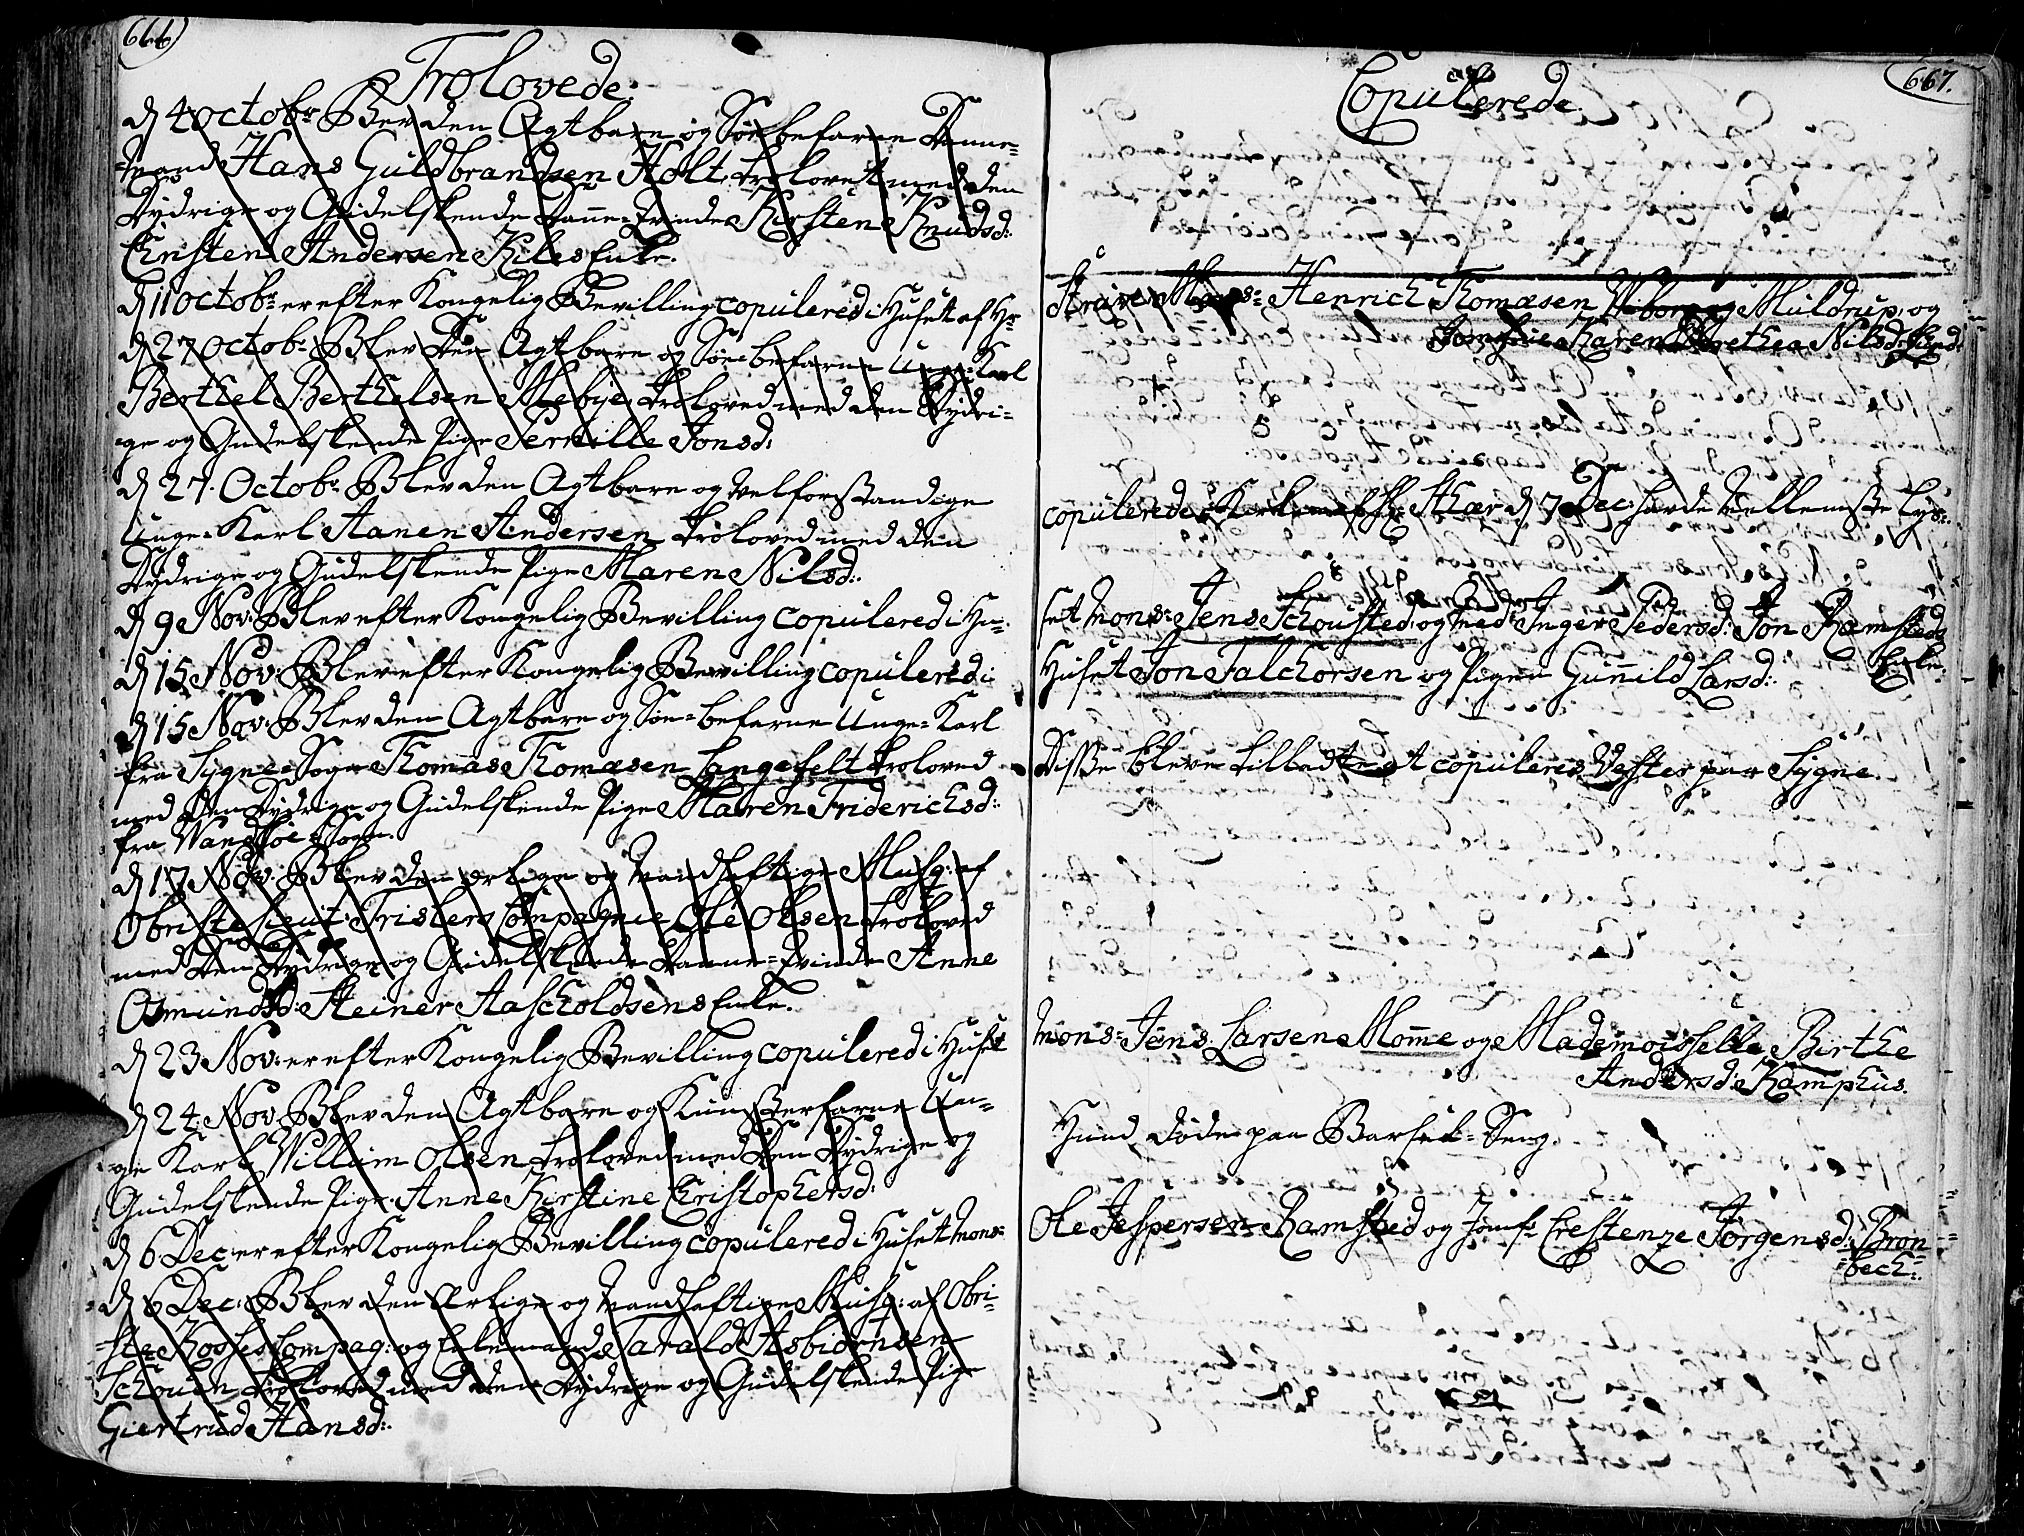 666)
Trolovede:
d 4 Octobr Blev den Agtbare og Søe befarne Danne=
=mand Hans Guldbrandsen Holt, trolovet med den
Dydrige og Gudelskende Danne=Qvinde Kirsten Knudsd:
Christen Andersen Kiles Enke.
d 11 Octobr er efter Kongelig Bevilling copulered i Huset af Hr
d 27 Octobr Blev den Agtbare og Søe befarne Unge=Karl
Berthel Berthelsen Mebye, troloved med den Dydri=
ge og Gudelskende Pige Pernille Jonsd:
d 27. Octobr Blev den Agtbare og velforstandige
Unge=Karl Aanen Andersen troloved med den
Dydrige og Gudelskende Pige Maren Nilsd:.
d 9 Nov: Blev efter Kongelig Bevilling copulered i Hu=
d 15 Nov: Blev efter Kongelig Bevilling copulered i
d 15 Nov: Blev den Agtbare og Søe=befarne Unge=Karl
fra Sygne=Sogn Thomas Thomæsen Langefelt troloved
med den Dydrige og Gudelskende Pige Maren Friderichsd:
fra Wandsøe Sogn.
d 17 Nov: Blev den ærlige og Mandhaftige Musq: af
Obriste Lieut: Frislers Compagnie Ole Olsen troloved
med den Dydrige og Gudelskende Danne=Qvinde Anne
Osmundsd: Steiner Aascholdsens Enke.
d 23 Nov: er efter Kongelig Bevilling copulered i Huset
d 24 Nov Blev den Agtbare og Kunsterfarne Un=
ge Karl Willum Olsen troloved med den Dydrige og
Gudelskende Pige Anne Kirstine Christophersd:
d 6 Dec: er efter Kongelig Bevilling copulered i Huset Mons:
d 6 Dec: Blev den ærlige og Mandhaftige Musq: af Obri=
=ste Rosses Compag: og Enkemand Tarald Asbiørnsen
Schouen troloved med den Dydrige og Gudelskende Pige
Giertrud Hansd:.
667.
Copulerede
Mons: Henrich Thomæsen Wiborg Muldrup, og
Jomfrue Karen Dorthea Nilsd: Lund:
copulerede d 7 Dec: havde
set Mons: Jens Schousted og Mad: Inger Pedersd: Jon Ramsteds
Enke.
Huset Jon Falchorsen og Pigen Gunnild Larsd:.
Disse bleve tilladte at copuleres Vester paa Sygne
Mons: Jens Larsen Momme og Mademoisselle Birthe
Andersd: Kamphus.
Hund døde paa Barsel=Seng.
Ole Jespersen Ramsted og Jomfr Crestenze Jørgensd: Bron=
=bech:.